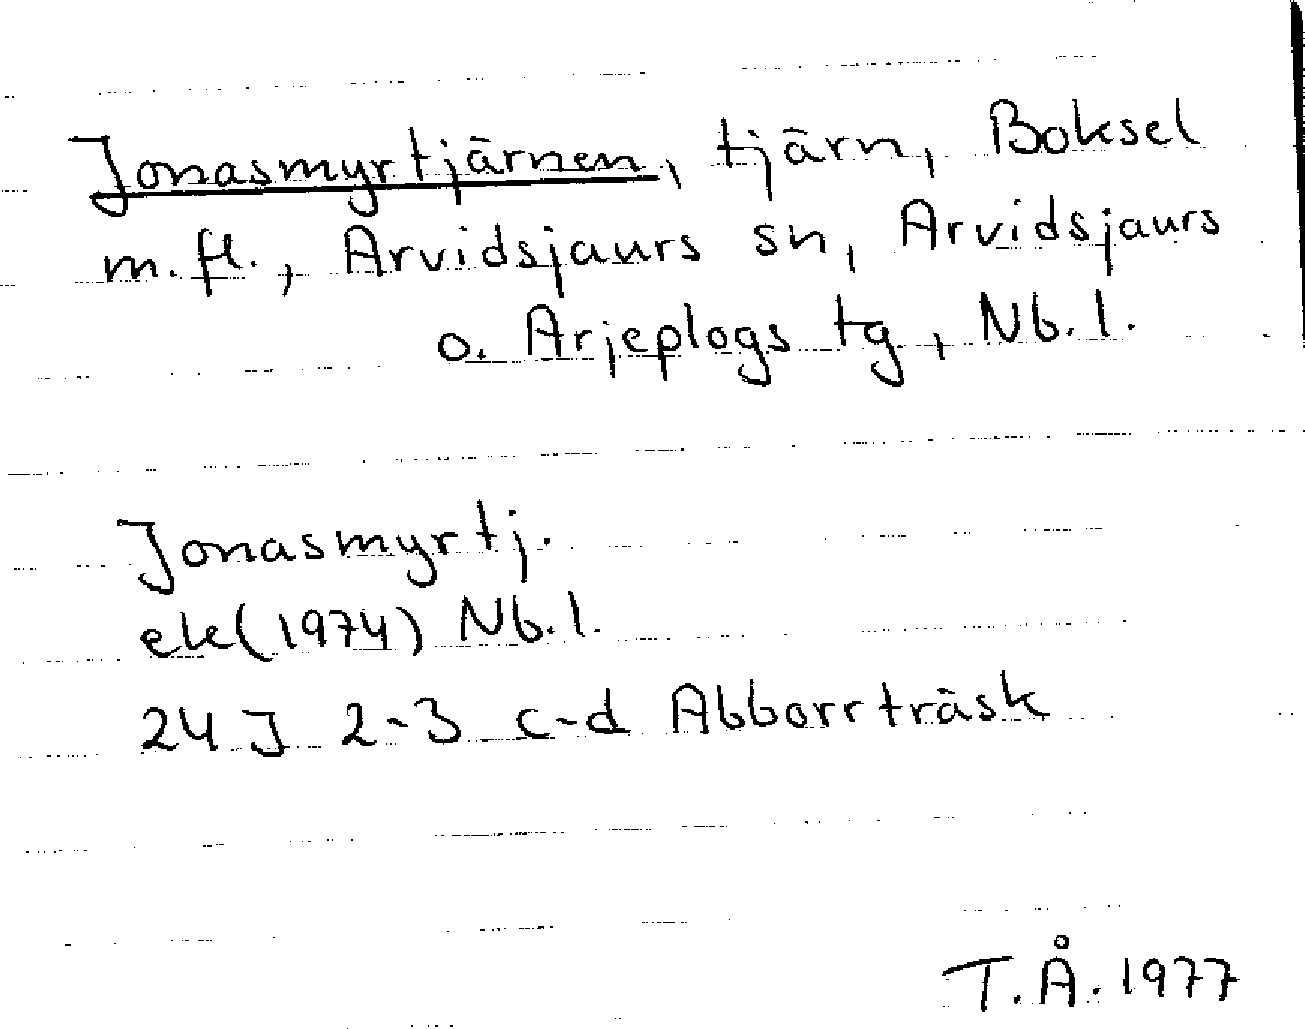 Jonasmyrtjärnen, tjärn, Boksel
m.fl., Arvidsjaurs sn, Arvidsjaurs
o. Arjeplogs tg, Nb.l.
Jonasmyrtj.
ek(1974) Nb.l.
24 J 2-3 c-d Abborrträsk
T.Å. 1977